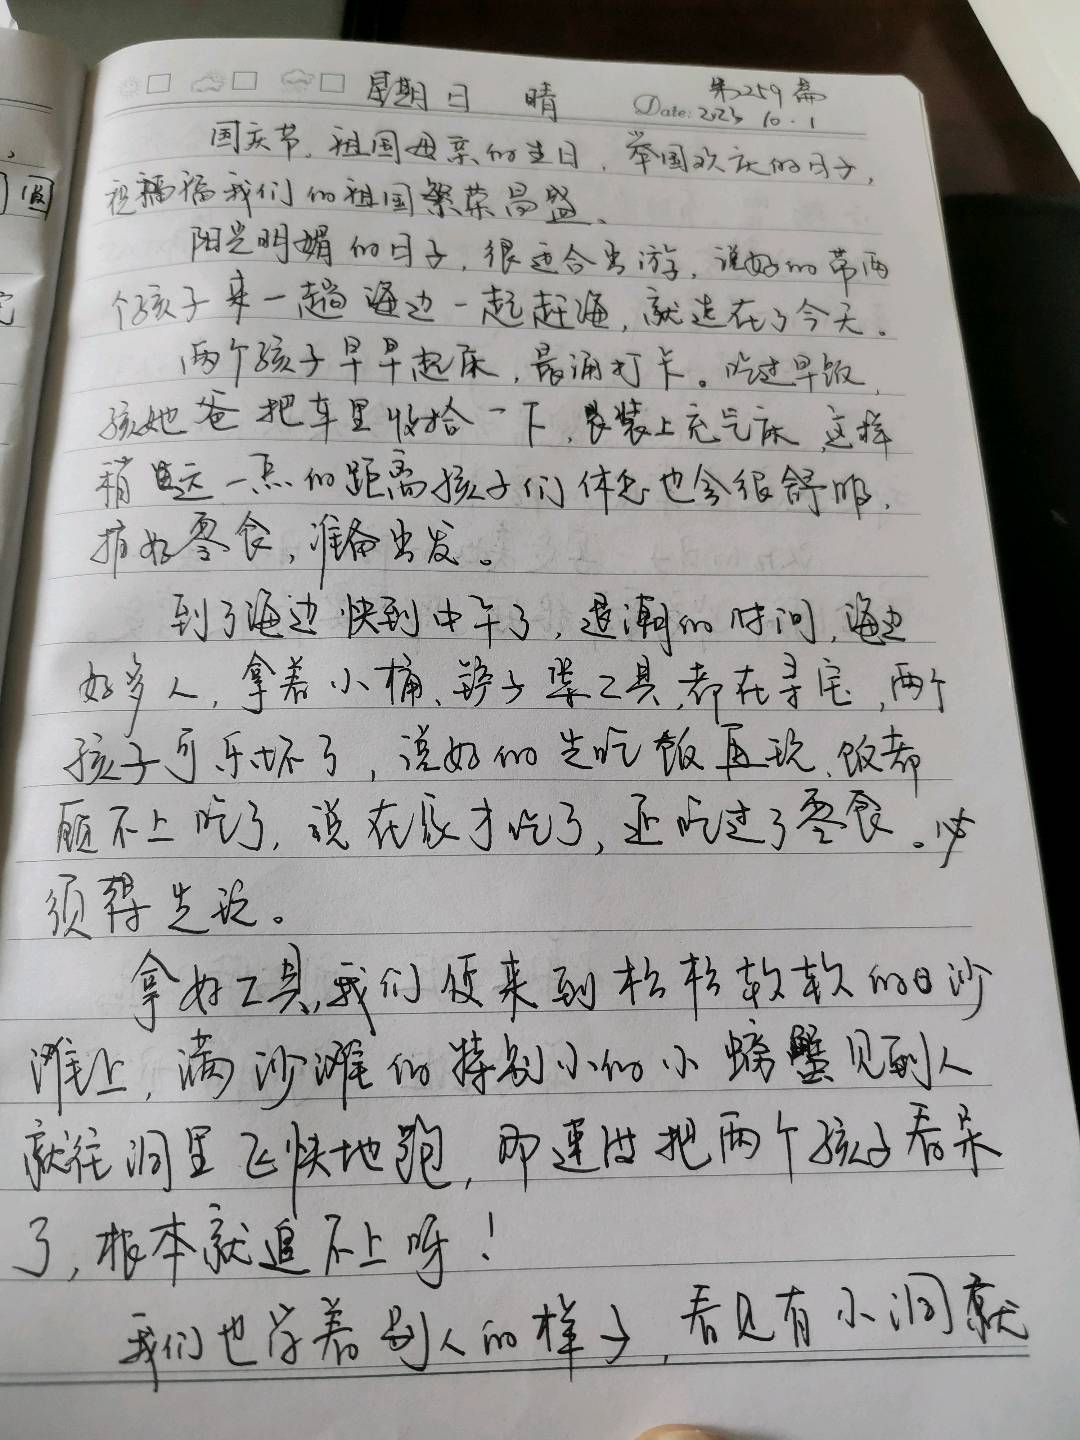 星期日 晴 第259篇
Date: 2023 10.1
国庆节，祖国母亲的生日，举国欢庆的日子，
祝福我们的祖国繁荣昌盛。
阳光明媚的日子，很适合出游，说好的带两
个孩子来一趟海边一起赶海，就选在了今天。
两个孩子早早起床，晨诵打卡。吃过早饭，
孩她爸把车里收拾一下，装上充气床，这样
稍远一点的距离孩子们休息也会很舒服，
捎好零食，准备出发。
到了海边快到中午了，退潮的时间，海边
好多人，拿着小桶、铲子等工具，都在寻宝，两个
孩子可乐坏了，说好的先吃饭再玩，饭都
顾不上吃了，说在家才吃了，还吃过了零食。必
须得先玩。
拿好工具，我们便来到松松软软的沙
滩上，满沙滩的特别小的小螃蟹见到人
就往洞里飞快地跑，那速度把两个孩子看呆
了，根本就追不上呀！
我们也学着别人的样子，看见有小洞就